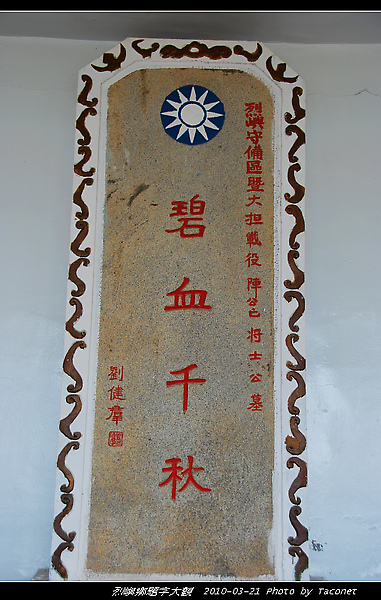 烈嶼守備區暨大担戰役陣亡將士公墓
碧血千秋
劉健羣
烈嶼鄉題字大觀 2010-03-21 Photo by Taconet